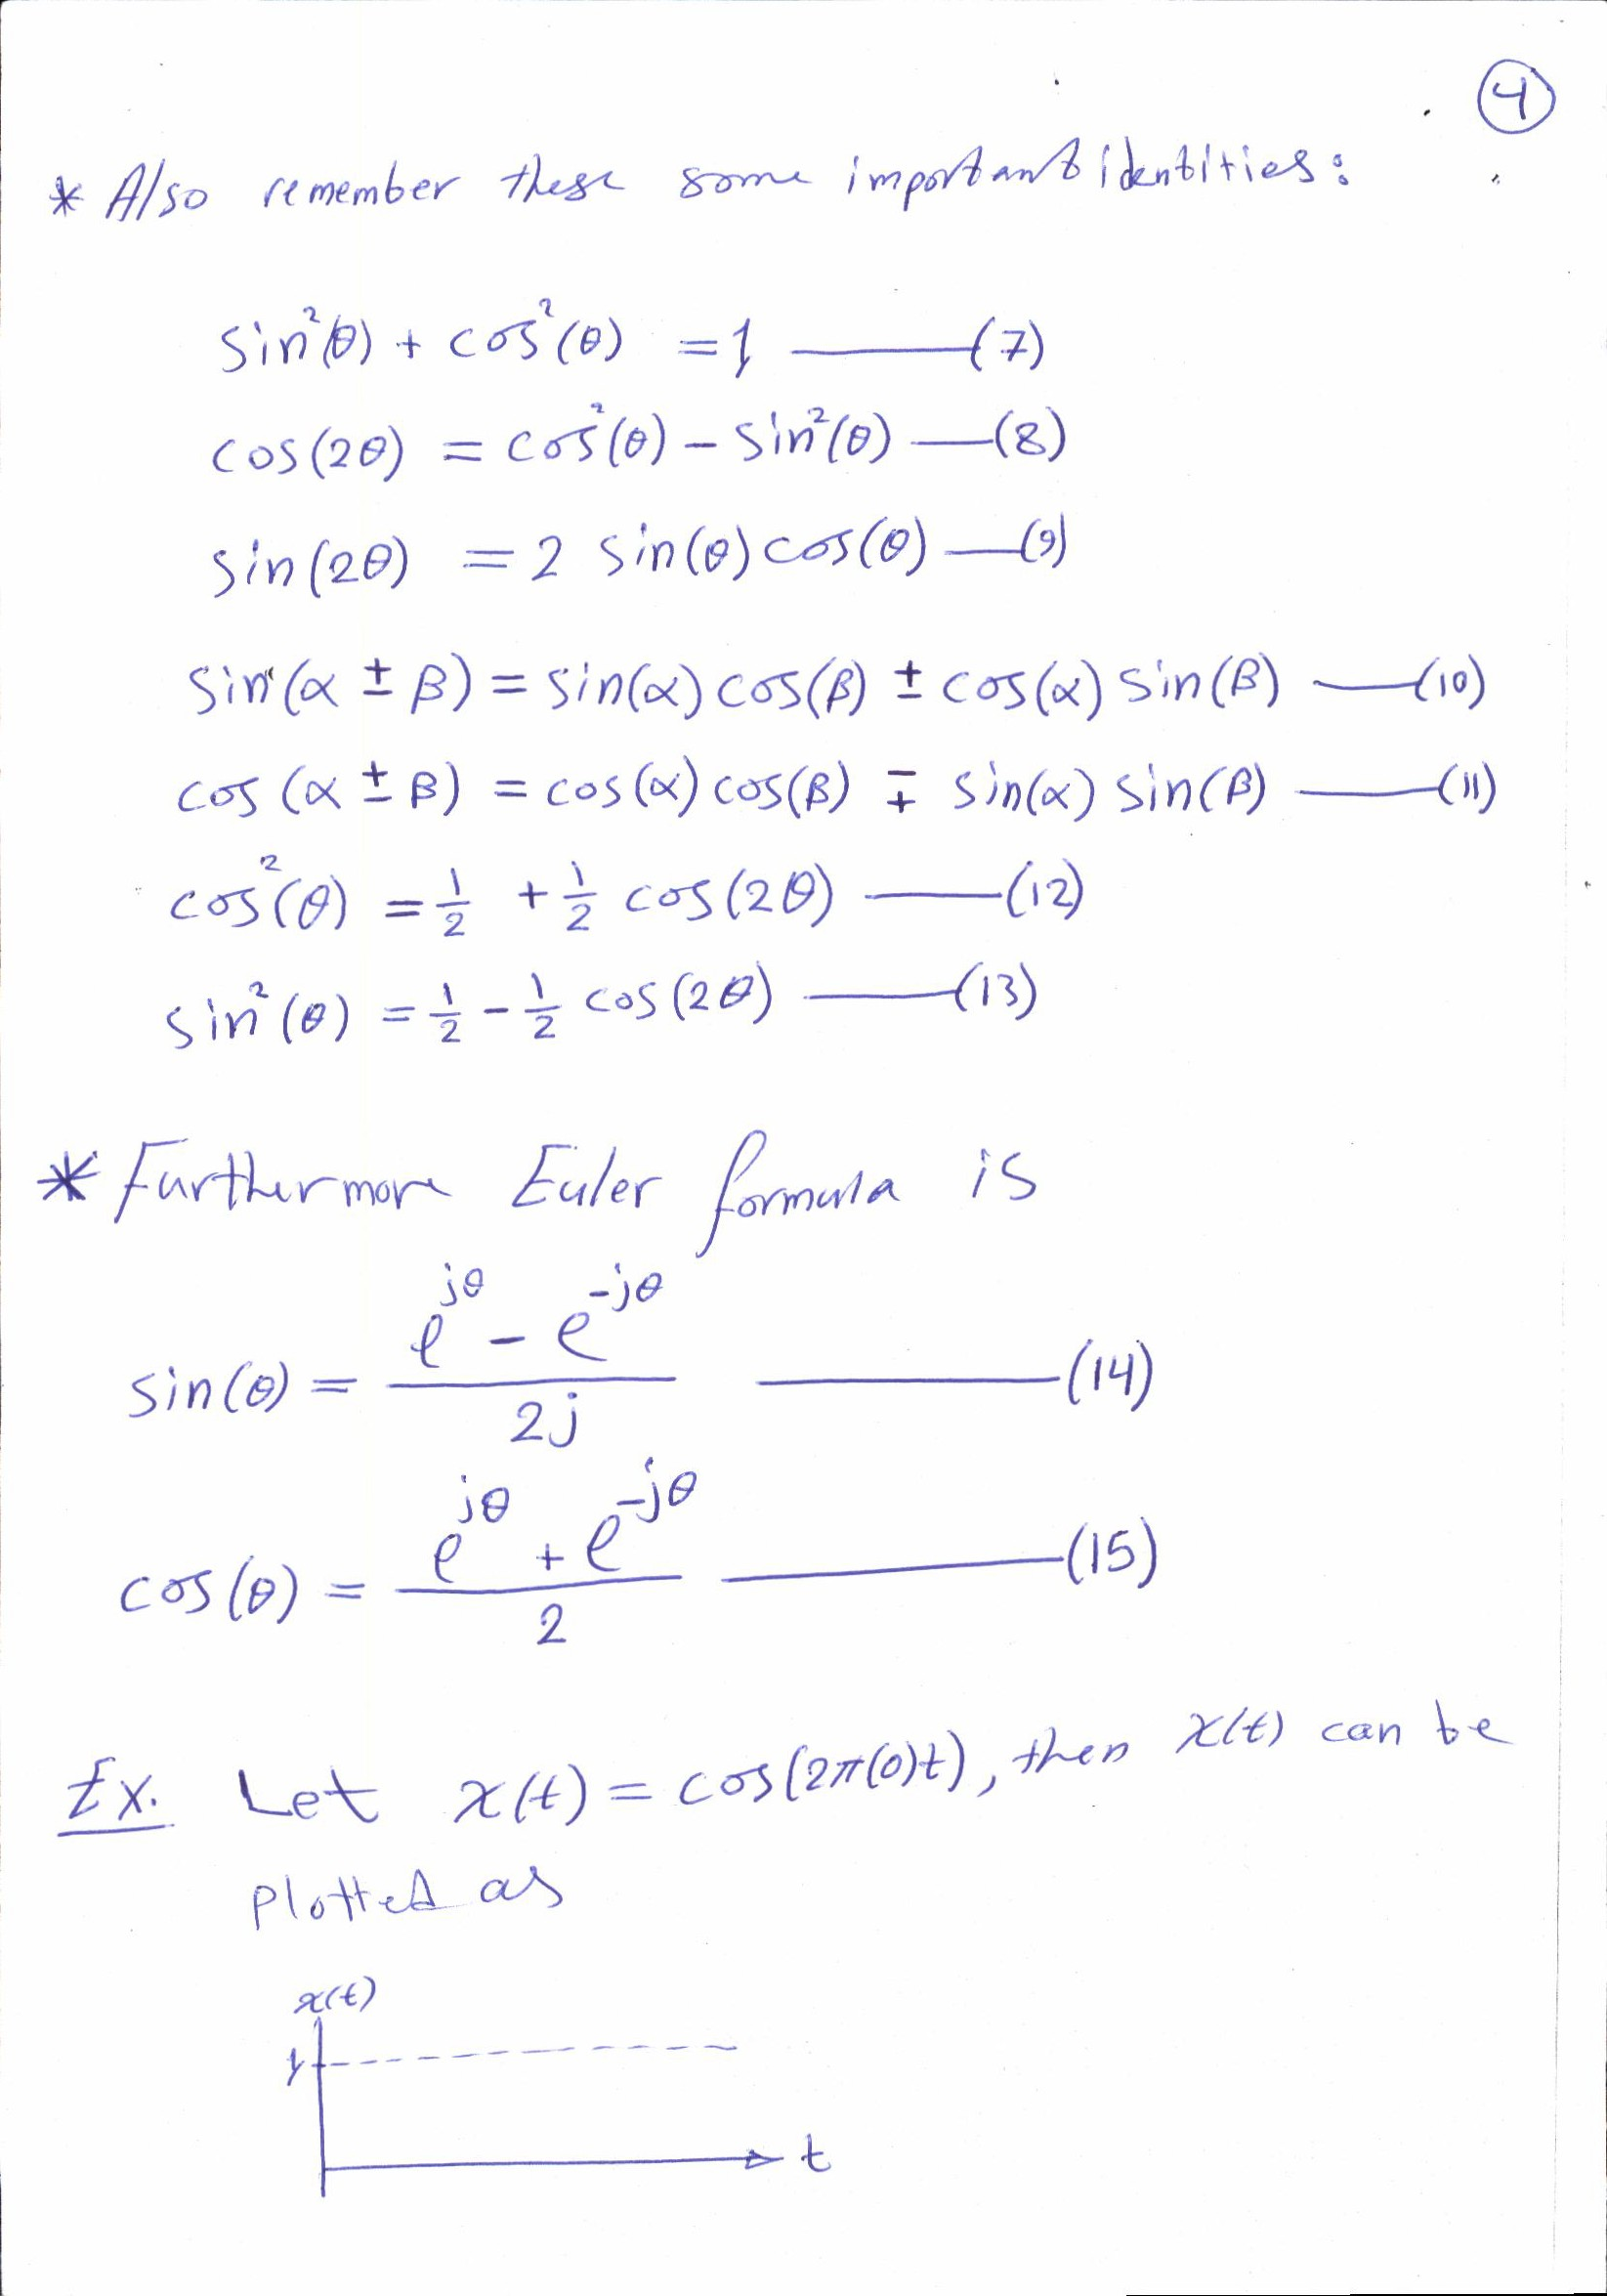 4
* Also remember these some important identities:
sin²(θ) + cos²(θ) = 1 ——— (7)
cos(2θ) = cos²(θ) - sin²(θ) — (8)
sin(2θ) = 2 sin(θ) cos(θ) — (9)
sin(α ± β) = sin(α) cos(β) ± cos(α) sin(β) — (10)
cos(α ± β) = cos(α) cos(β) ∓ sin(α) sin(β) — (11)
cos²(θ) = 1/2 + 1/2 cos(2θ) — (12)
sin²(θ) = 1/2 - 1/2 cos(2θ) — (13)
* Furthermore Euler formula is
sin(θ) = (e^{jθ} - e^{-jθ}) / 2j ——— (14)
cos(θ) = (e^{jθ} + e^{-jθ}) / 2 ——— (15)
Ex. Let x(t) = cos(2π(0)t), then x(t) can be
plotted as
x(t)
1
t